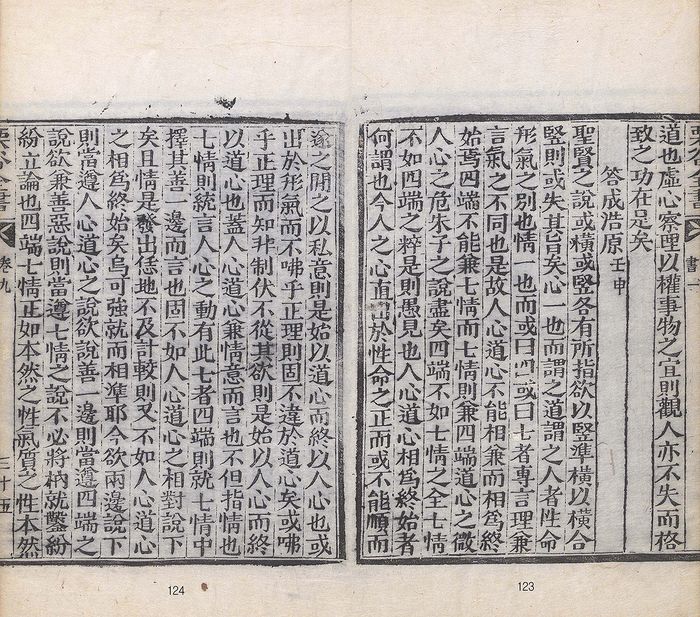 書一
道也虛心察理以權事物之宜則觀人亦不失而格
致之功在足矣
答成浩原 壬申
聖賢之說或橫或豎各有所指欲以豎準橫以橫合
豎則或失其旨矣心一也而謂之道謂之人者性命
形氣之別也情一也而或曰四或曰七者專言理兼
言氣之不同也是故人心道心不能相兼而相爲終
始焉四端不能兼七情而七情則兼四端道心之微
人心之危朱子之說盡矣四端不如七情之全七情
不如四端之粹是則愚見也人心道心相爲終始者
何謂也今人之心直出於性命之正而或不能順而
遂之間之以私意則是始以道心而終以人心也或
出於形氣而不咈乎正理則固不違於道心矣或咈
乎正理而知非制伏不從其欲則是始以人心而終
以道心也蓋人心道心兼情意而言也不但指情也
七情則統言人心之動有此七者四端則就七情中
擇其善一邊而言也固不如人心道心之相對說下
矣且情是發出恁地不及計較則又不如人心道心
之相爲終始矣烏可強就而相準耶今欲兩邊說下
則當遵人心道心之說欲說善一邊則當遵四端之
說欲兼善惡說則當遵七情之說不必將枘就鑿紛
紛立論也四端七情正如本然之性氣質之性本然
栗谷全書 卷九 三十五
123
124